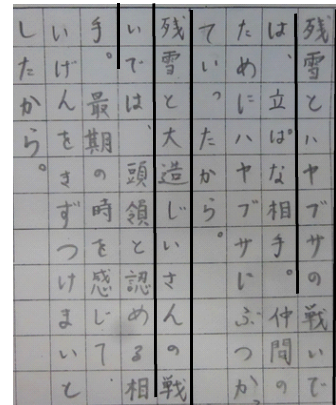 残雪とハヤブサの戦いで
は、立ぱな相手。仲間の
ために ハヤブサにぶつか
ていったから。
残雪と大造じいさんの戦
いでは、頭領と認める相
手。最期の時を感じてる
いげんをきずつけまいと
したから。